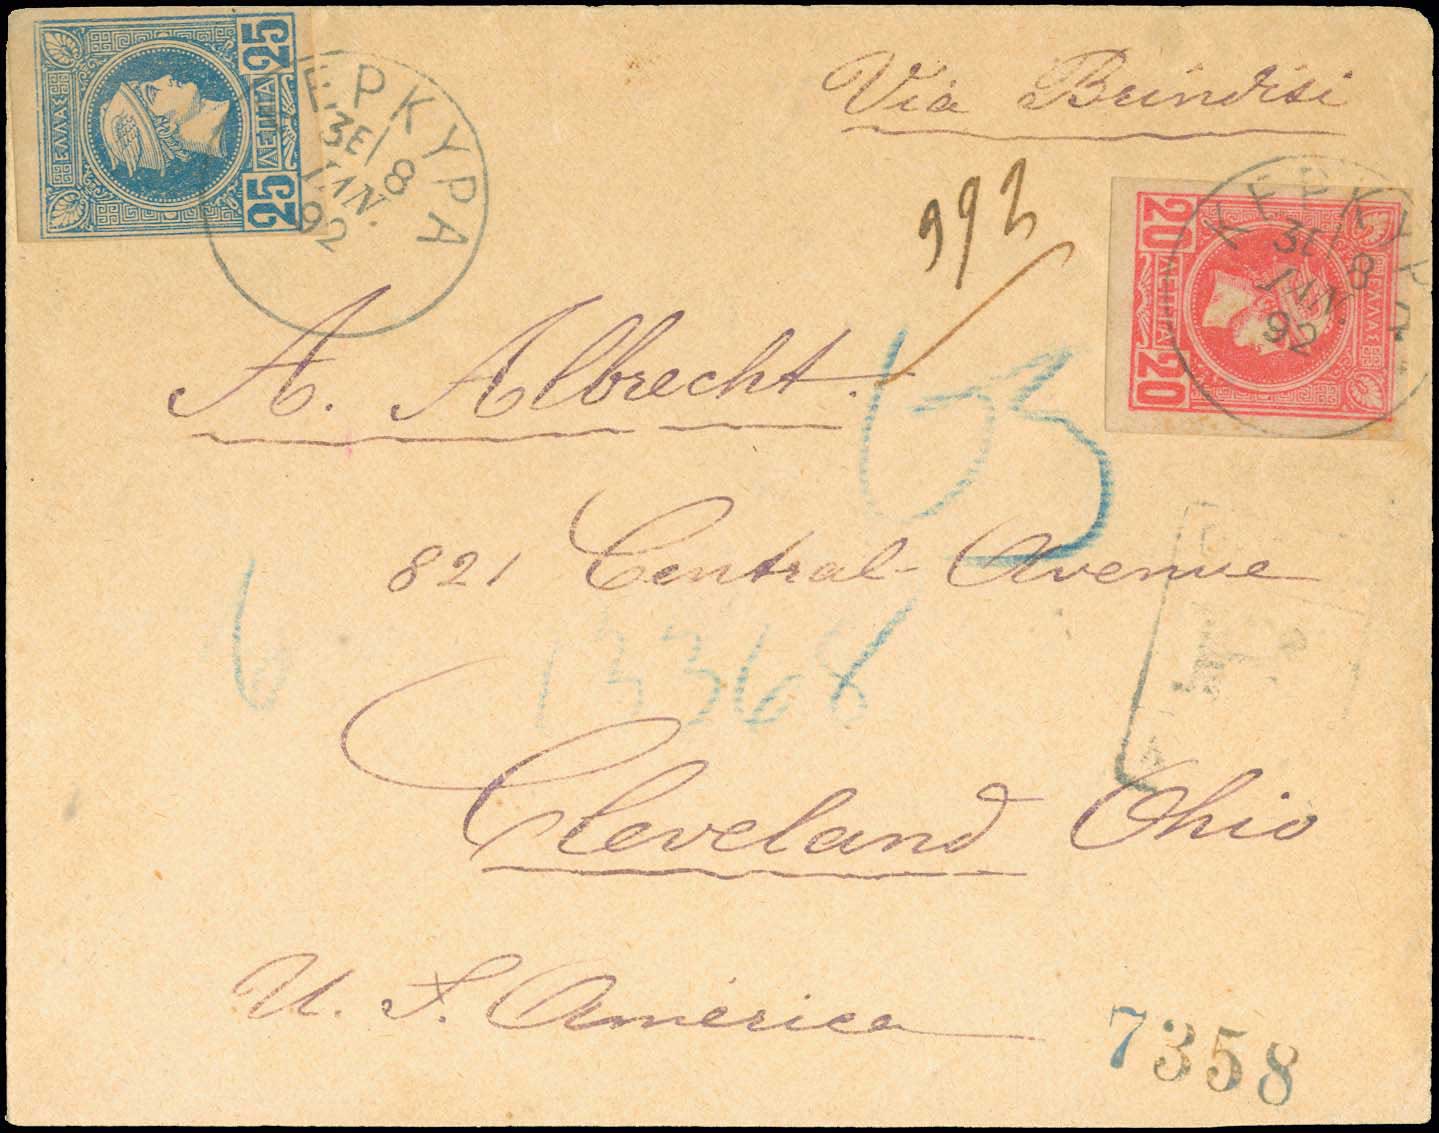 25 ΛΕΠΤΑ 25
ΕΛΛΑΣ
ΚΕΡΚΥΡΑ
8
ΙΑΝ.
92
Via Brindisi
20 ΛΕΠΤΑ 20
ΕΛΛΑΣ
ΚΕΡΚΥΡΑ
8
ΙΑΝ.
92
A. Albrecht.
63
821 Central Avenue
6
13368
Cleveland Ohio
U. S. America
7358